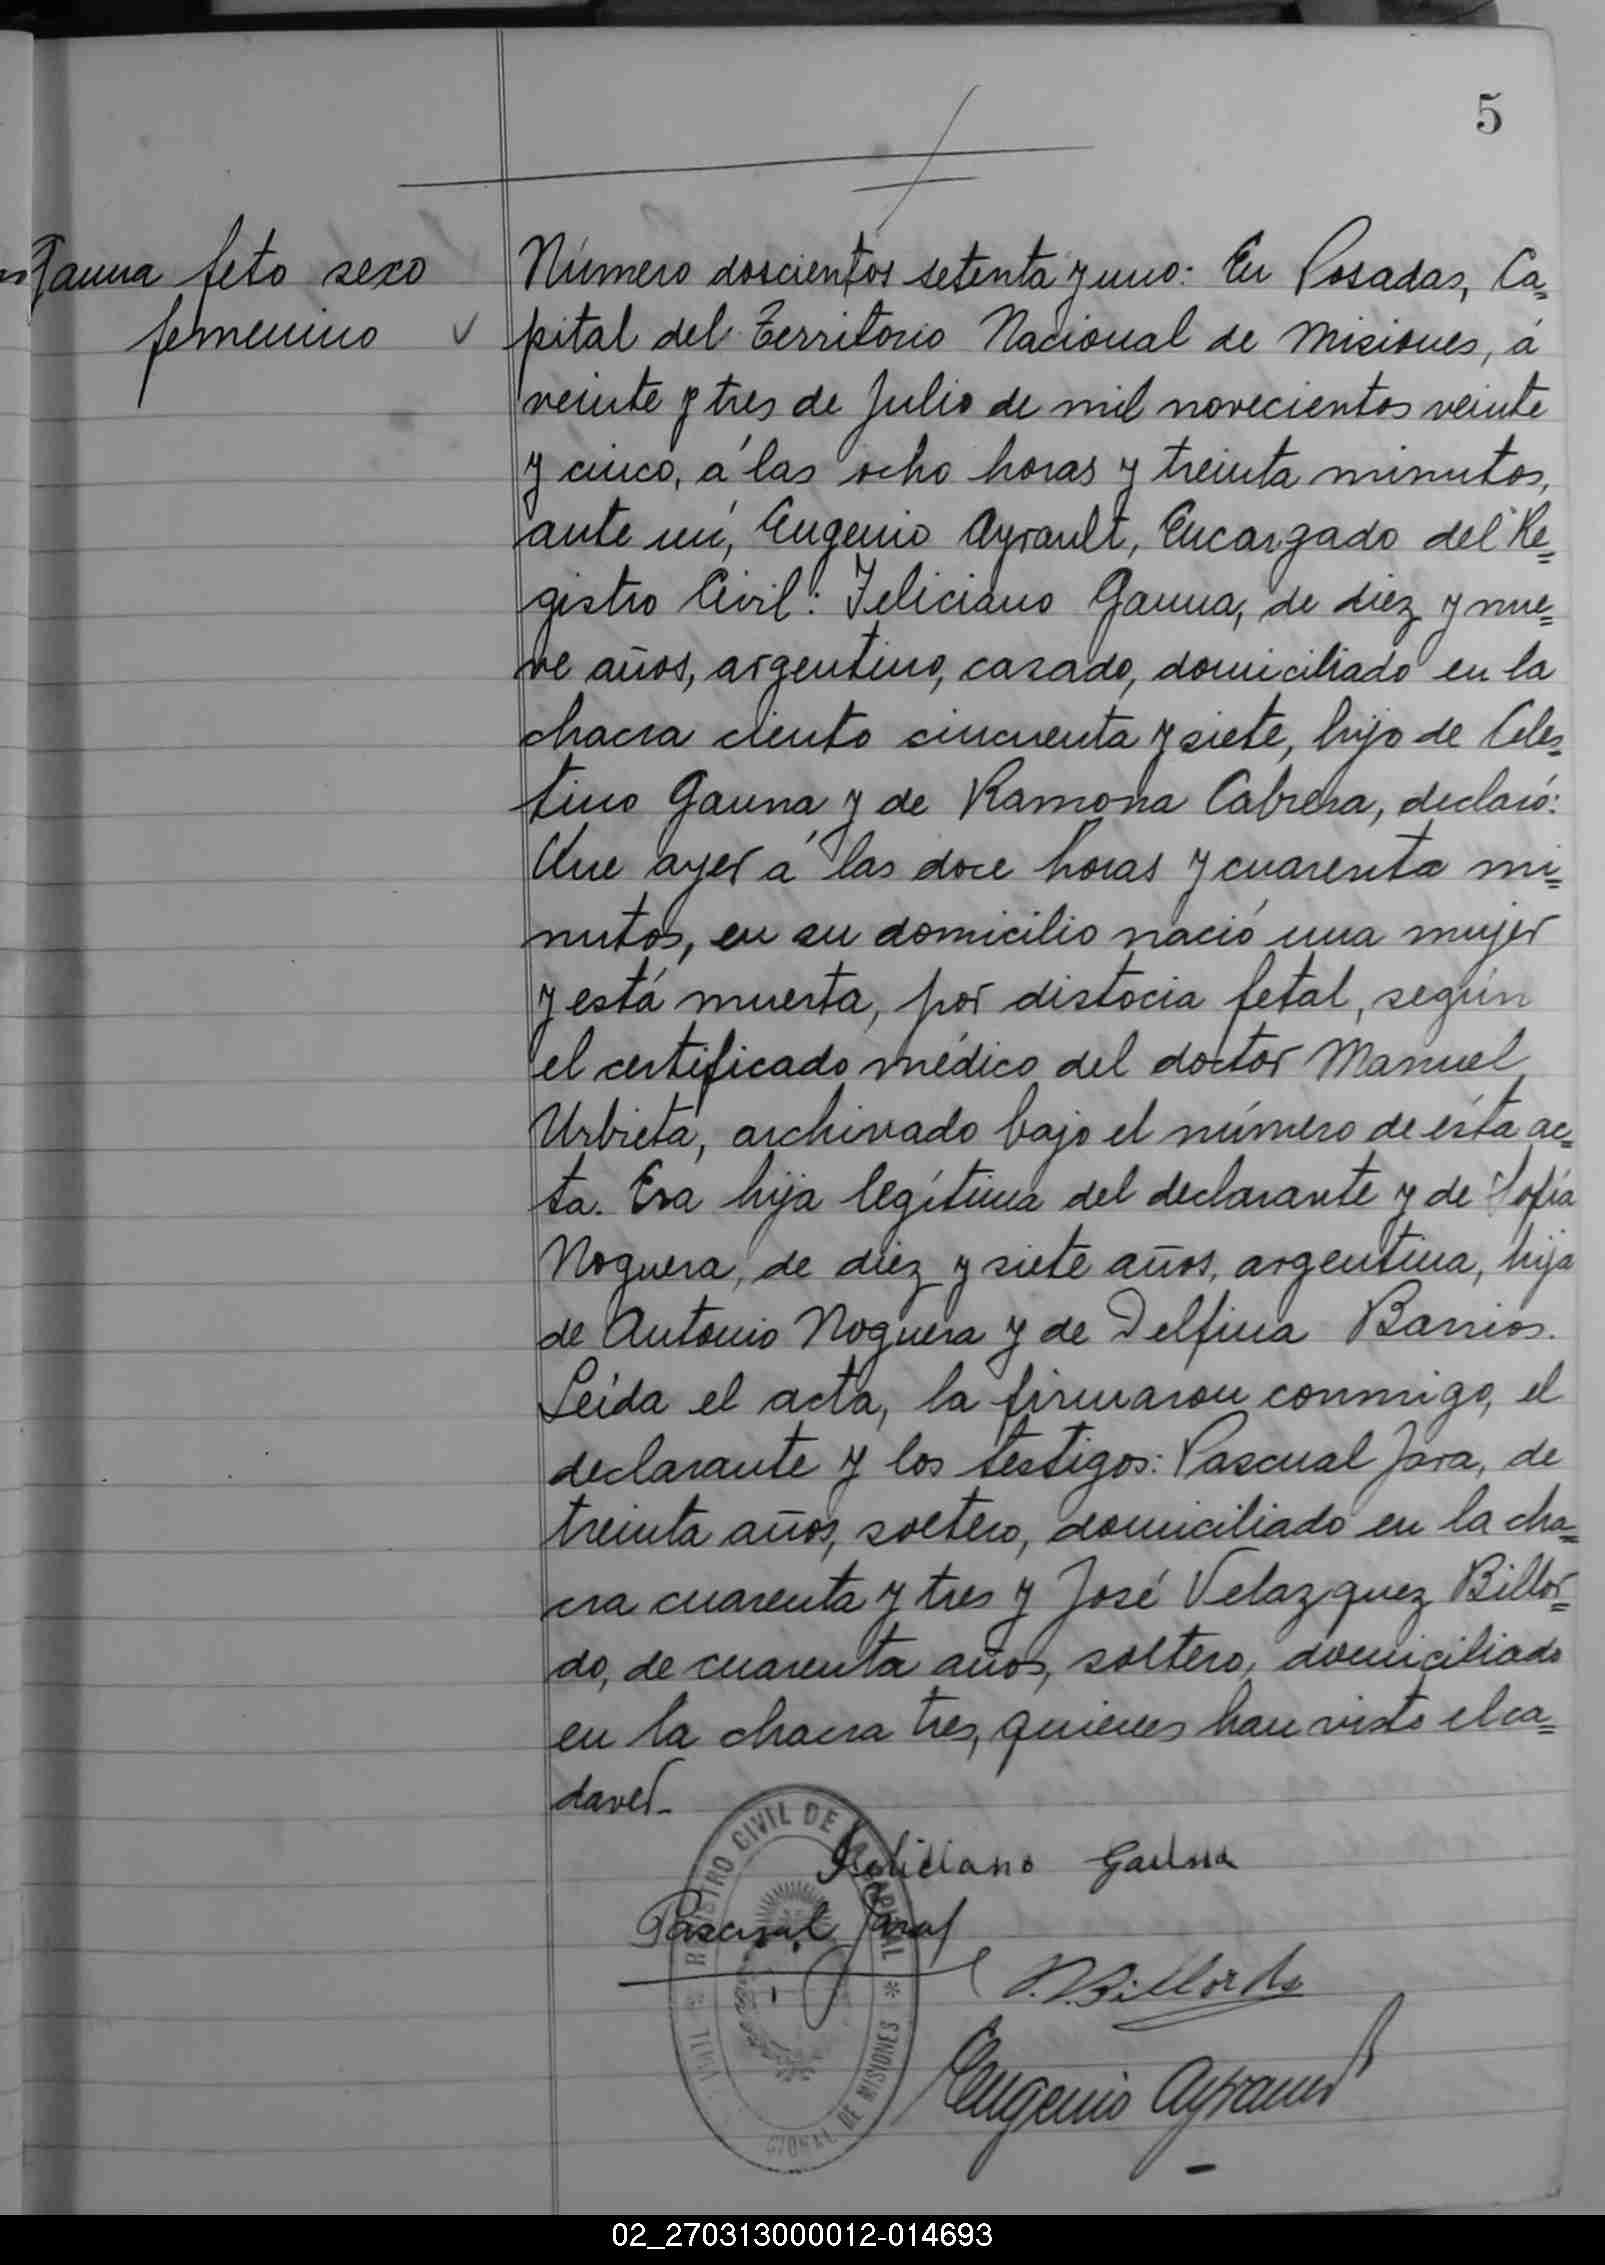 5
Gauna feto sexo
femenino
Número doscientos setenta y uno: En Posadas, Ca=
pital del Territorio Nacional de Misiones, á
veinte y tres de Julio de mil novecientos veinte
y cinco, á las ocho horas y treinta minutos,
ante mí, Eugenio Ayrault, Encargado del Re=
gistro Civil: Feliciano Gauna, de diez y nue=
ve años, argentino, casado, domiciliado en la
chacra ciento cincuenta y siete, hijo de Celes=
tino Gauna y de Ramona Cabrera, declaró:
Que ayer á las doce horas y cuarenta mi=
nutos, en su domicilio nació una mujer
y está muerta, por distocia fetal, según
el certificado médico del doctor Manuel
Urbieta, archivado bajo el número de ésta ac=
ta. Era hija legítima del declarante y de Sofía
Noguera, de diez y siete años, argentina, hija
de Antonio Noguera y de Delfina Barrios.
Leída el acta, la firmaron conmigo, el
declarante y los testigos: Pascual Jara, de
treinta años, soltero, domiciliado en la cha=
cra cuarenta y tres y José Velazquez Billor=
do, de cuarenta años, soltero, domiciliado
en la chacra tres, quienes han visto el ca=
daver.
REGISTRO CIVIL DE LA CAPITAL
Feliciano Gauna
Pascual Jara
J. V. Billordo
DE MISIONES
Eugenio Ayrault
02_270313000012-014693